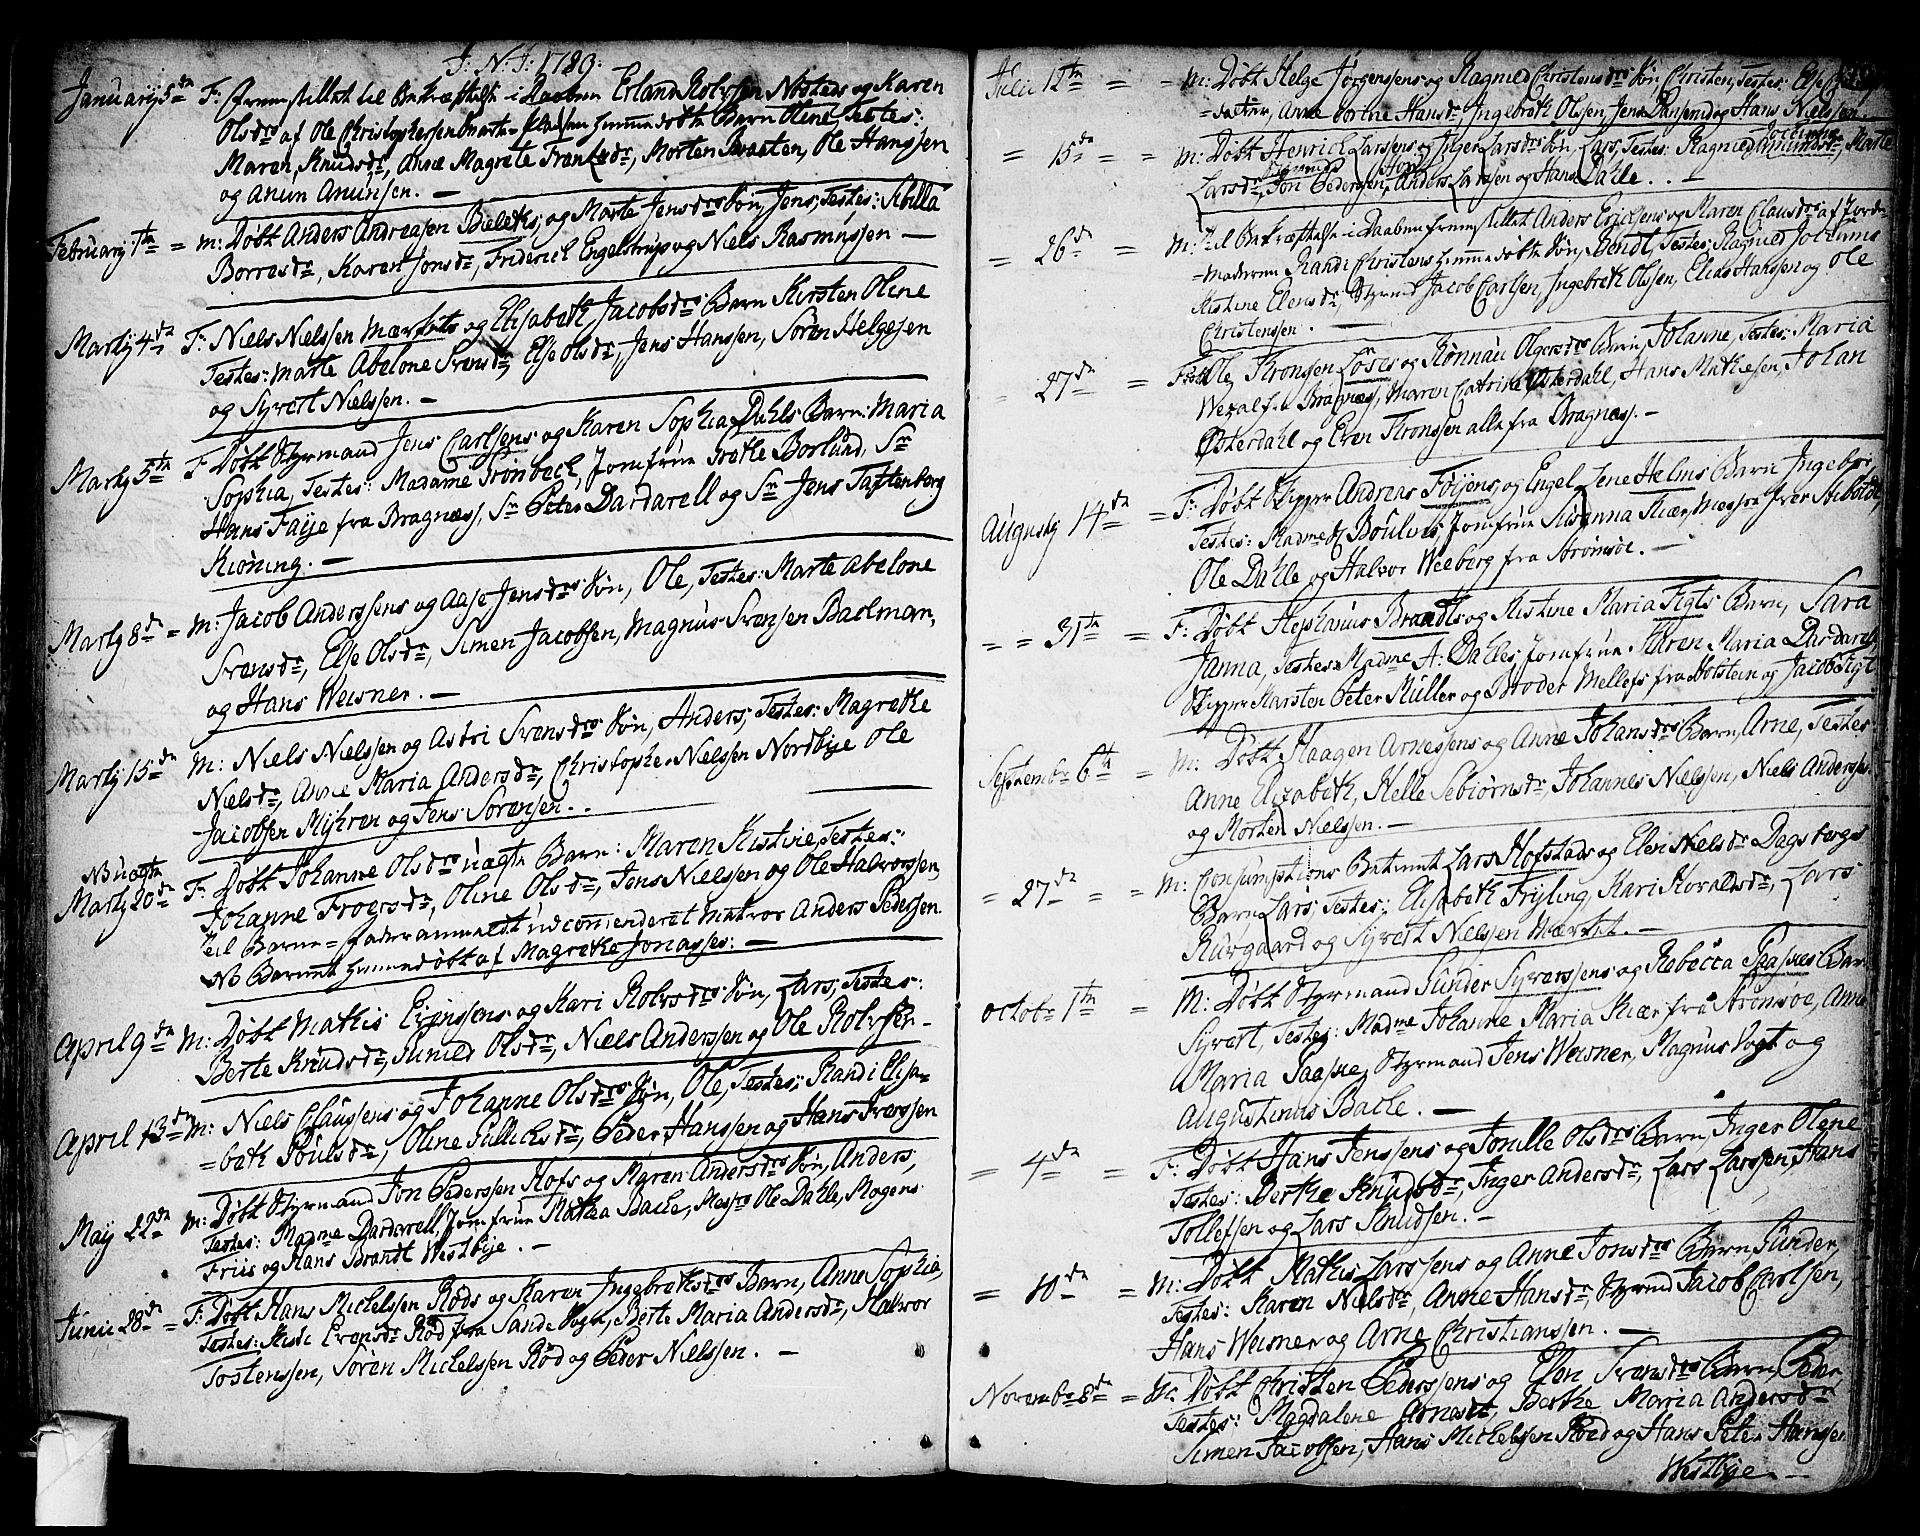 J: N: J: 1789:
Januarij 5te F: Fremstillet til Bekræftelse i Daaben Erland Rolvsen Nøstads og Karen
Olsdr af Ole Christophersen hiemmedøbte Barn Olene, Testes:
Maren Knudsdr, Anne Magrete Frantzdr, Morten Braaten, Ole Hanssen
og Anun Anunsen. —
Februarij 1te = M: Døbt Anders Andreasen Beleths, og Marte Jensdrs Søn, Jens, Testes: Sibilla
Borresdr, Karen Jonsdr, Friderich Engelstrup og Niels Rasmussen —
Martij 4de F: Niels Nielssen og Elisabeth Jacobsdrs Barn Kirsten Oline
Testes: Marte Abelone Svensdr, Else Olsdr, Jens Hansen, Søren Helgesen
og Syvert Nielssen. —
Martij 5te F: Døbt Styrmand Jens Carlsens og Karen Sophia Dahls Barn: Maria
Sophia, Testes: Madame Grønbech, Jomfrue Borlund, Sr
Hans Faÿe fra Bragnæss, Sr Peter Dardarell og Sr Jens Tastenberg
Kiøning. —
Martij 8de = M: Jacob Anderssens og Aase Jensdrs Søn, Ole, Testes: Marte Abelone
Svensdr, Else Olsdr, Simen Jacobssen, Magnus Svensen
og Hans Weisner. —
Martij 15de M: Niels Nielssen og Astri Svensdrs Søn, Anders, Testes: Magrethe
Nielsdr, Anne Maria Andersdr, Christopher Nielssen Nordbÿe Ole
Jacobsen og Jens Sørensen. .
NB uægte
Martij 20de F: Døbt Johanne Olsdrs uægte Barn: Maren Kistine, Testes:
Johanne Frogersdr, Oline Olsdr, Jens Nielssen og Ole Halvorssen,
Til Barne-fader anmeldt udcommenderet Matros Anders Pedersen
NB Barnet hiemmedøbt af Magrethe Jonasses: —
April 9de M: Døbt Mathis Evenssens og Kari Rolvsdrs Søn, Lars, Testes:
Berte Knudsdr, Gunild Olsdr, Niels Anderssen og Ole Rolvsen —
April 13de M: Niels Claussens og Johanne Olsdrs Søn, Ole, Testes: Randi Elisa-
=beth Poulsdr, Oline Gullichsdr, Peder Hanssen og Hans Iverssen
May 22de M: Døbt Styrmand Jon Pederssen Hofs og Maren Andersdrs Søn, Anders,
Testes: Madme Dardarell, Jomfrue Mathea Bache, Messr Ole Dahle, Mogens
Friis og Hans Brandt Westbÿe. —
Junii 28de = F: Døbt Hans Michelssen Røds og Karen Ingebrethsdrs Barn, Anne Sophia,
Testes: Evensdr Rød fra Sande Sogn, Berte Maria Andersdr, Halvor
Tostenssen, Søren Michelssen Rød og Peder Nielssen. —
Julii 12te = = M: Døbt Helge Jørgensens og Ragnild Christensdrs Søn, Christen, Testes:
=datter, Anne Hansdr, Ingebreth Olssen, Jens og Hans Nielssen.
= 15de = = M: Døbt Henrich Larssens og Inger Larsdrs Søn, Lars, Testes: Ragnild Marte
Larsdr, Jon Pedersen, Anders Larssen og Hans Dahle. .
= 26de = M: Til Bekræftelse i Daaben fremstillet Anders Erichsens og Maren Clausdrs af Jorde-
=moderen Randi Christens hiemmedøbte Søn, Bendt, Testes: Ragnild Jochums
Kistine Elensdr, Styrmd Jacob Carlsen, Ingebreth Olssen, Elias Hanssen og Ole
Christenssen. —
27de = F: Ole Tronsen Løses og Rønnau Olgersdrs Barn, Johanne, Testes: Maria
fra Bragnæs, Maren Catrina Østerdahl, Hans Mathiesen, Johan
Østerdahl og Even Tronssen alle fra Bragnæs. —
Augusty 14de = F: Døbt Skipper Andreas Føÿens og Engel Lene Helms Barn Ingebor
Testes: Madme Boulous, Jomfrue Susanna Kiær, Messrs Iver Stiboldt,
Ole Dahle og Halvor Weeberg fra Strømsøe. —
= = 31te = F: Døbt Stephanus Brandts og Kistine Maria Figts Barn, Sara
Janna, Testes: Madme A: Dahles, Jomfrue Maren Maria Dardarell
Skipper Karsten Peter Müller og Broder Mellefs fra Holstein og Jacob Figt
Septembr 6te = M: Døbt Haagen Arnessens og Anne Johansdrs Barn, Arne, Testes:
Anne Elisabeth, Helle Sebiørnsdr, Johannes Nielssen, Niels Anderssen
og Morten Nielssen. —
= 27de = = M: Consumptions Betient Lars Hofstads og Elen Nielsdr Dagsbergs
Barn, Lars, Testes: Elisabeth Frÿling, Kari Haraldsdr, Lars
Ruvgaard og Syvert Nielssen Mærket. —
Octobr 1te = M: Døbt Styrmand Gunder Syverssens og Rebecca Paaskes Barn
Syvert, Testes: Madme Johanne Maria Kiær fra Strømsøe, Anne
Maria Paaske, Styrmand Jens Weisner, Magnus Vogt og
Augustinus Bache. —
= 4de = F: Døbt Hans Jenssens og Jonille Olsdrs Barn, Inger Olene
Testes: Berthe Knudsdr, Inger Andersdr, Lars Larssen, Hans
Tollefsen og Lars Knudsen. —
= 10de = M: Døbt Mathis Larssens og Anne Jonsdrs Barn Gunder,
Testes: Karen Nielsdr, Anne Hansdr, Styrmd Jacob Carlsen,
Hans Weisner og Arne Christianssen. —
Novembr 8de = M: Døbt Christen Pederssens og Elen Svensdrs Barn, Peder
Testes: Magdalene Arnesdr, Berthe Maria Andersdr
Simen Jacobssen, Hans Michelssen Røed og Hans Peter Hansen
Westbÿe. —